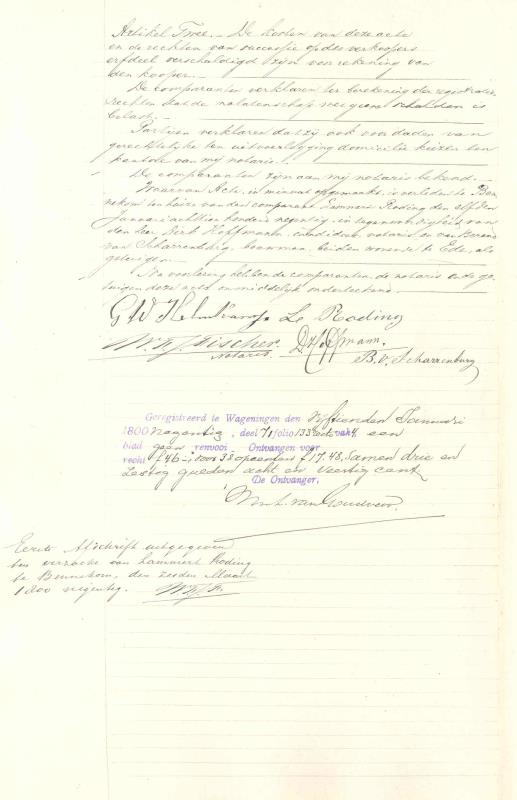 Artikel Twee. _ De kosten van deze acte
en de rechten van successie op des verkoopers
erfdeel verschuldigd zijn voor rekening van
den kooper. _
De comparanten verklaren ter berekening der registratie
rechten dat de nalatenschap met geene schulden is
belast. _
Partijen verklaren dat zij ook voor daden van
gerechtelijke ten uitvoerlegging domicilie kiezen ten
kantore van mij notaris. _
De comparanten zijn aan mij notaris bekend. _
Waarvan Acte, in minuut opgemaakt, is verleden te Ben
nekom ten huize van den comparant Lammert Roding den elfden
Januari achttien honderd negentig, in tegenwoordigheid van
den heer Dirk Hoffmann, candidaat notaris en van Barend
van Scharrenburg, bouwman, beiden wonende te Ede, als
getuigen. _
Na voorlezing hebben de comparanten, de notaris en de ge
tuigen deze acte onmiddelijk onderteekend.
G W Le Roding
Fischer. D. Hoffmann.
Notaris B. v. Scharrenburg
Geregistreerd te Wageningen den Vijftienden Januari
1800 negentig, deel 71 folio 133 vak 4 een
blad geen renvooi Ontvangen voor
recht f 46 -, voor 38 opcenten f 17.48, Samen drie en
zestig gulden acht en veertig cent
De Ontvanger,
Eerste Afschrift uitgegeven
ten verzoeke van Lammert Roding
te Bennekom, den zesden Maart
1800 negentig.